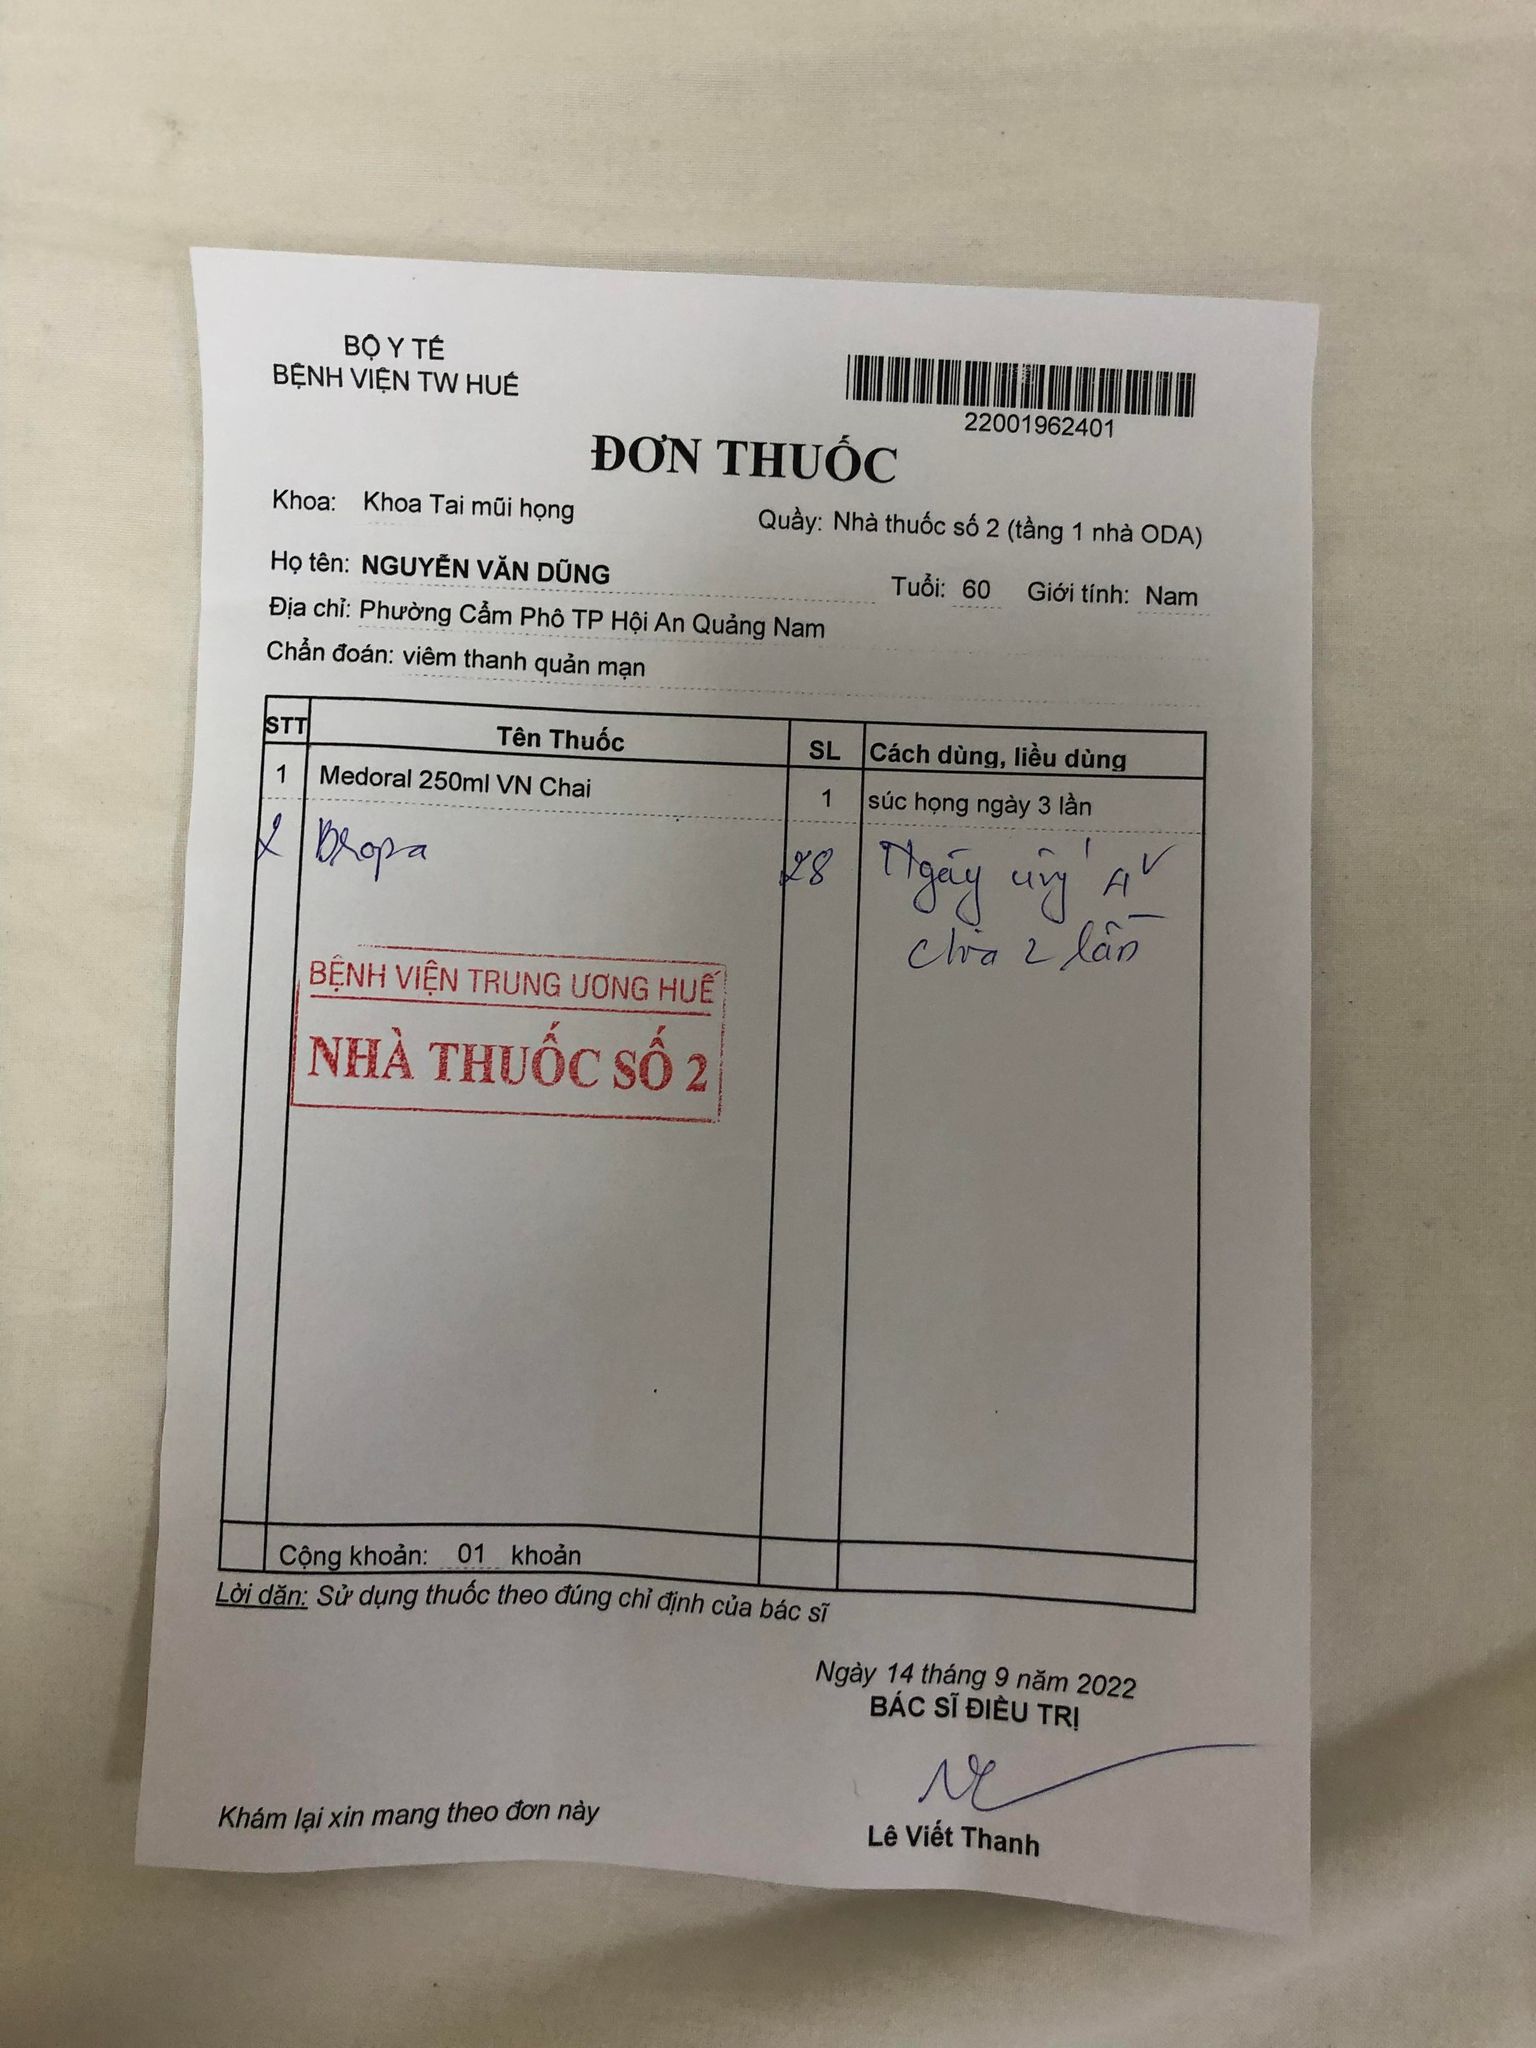 BỘ Y TẾ
BỆNH VIỆN TW HUẾ
22001962401
ĐƠN THUỐC
Khoa: Khoa Tai mũi họng
Quầy: Nhà thuốc số 2 (tầng 1 nhà ODA)
Họ tên: NGUYỄN VĂN DŨNG Tuổi: 60 Giới tính: Nam
Địa chỉ: Phường Cẩm Phô TP Hội An Quảng Nam
Chẩn đoán: viêm thanh quản mạn
STT Tên Thuốc SL Cách dùng, liều dùng
1 Medoral 250ml VN Chai 1 súc họng ngày 3 lần
2 28 Ngày
chia 2 lần
BỆNH VIỆN TRUNG ƯƠNG HUẾ
NHÀ THUỐC SỐ 2
Cộng khoản: 01 khoản
Lời dặn: Sử dụng thuốc theo đúng chỉ định của bác sĩ
Ngày 14 tháng 9 năm 2022
BÁC SĨ ĐIỀU TRỊ
Khám lại xin mang theo đơn này
Lê Viết Thanh